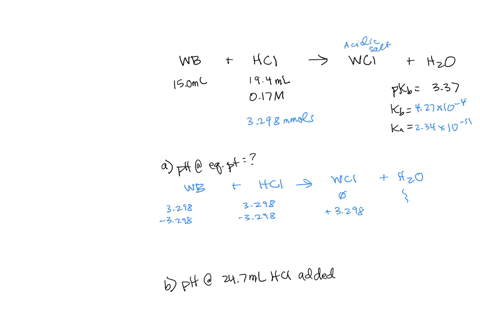 Acidic salt
WB + HCl → WCl + H₂O
15.0mL 19.4mL
0.17M
3.298 mmols
pKb = 3.37
Kb = 4.27×10⁻⁴
Ka = 2.34×10⁻¹¹
a) pH @ eq. pt = ?
WB + HCl → WCl + H₂O
3.298 3.298 ∅
-3.298 -3.298 +3.298
b) pH @ 24.7mL HCl added